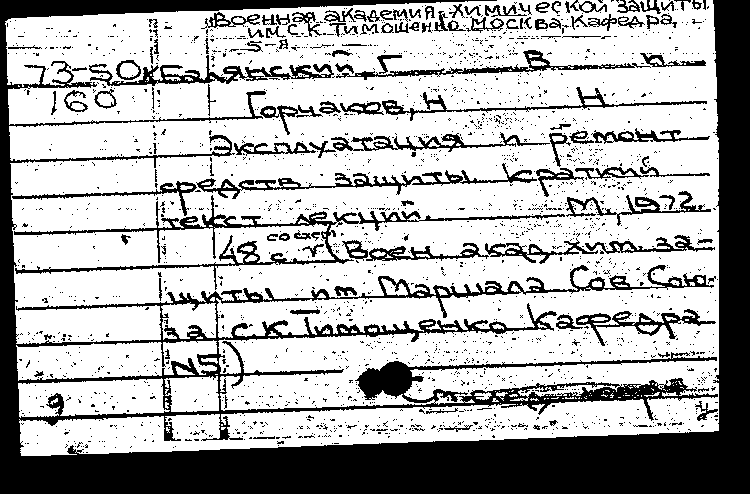 Военная академия химической защиты
им. С.К. Тимошенко. Москва, Кафедра,
5-я.
73-50к Балянский, Г В и
160 Горчаков, Н Н
Эксплуатация и ремонт
средств защиты. Краткий
текст лекций. М., 1972.
48 с. (Воен. акад. хим. за-
щиты им. Маршала Сов. Сою-
за С.К. Тимошенко Кафедра
N5).
9